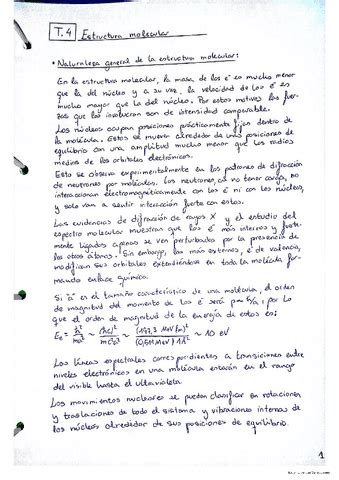 T.4 Estructura molecular
• Naturaleza general de la estructura molecular:
En la estructura molecular, la masa de los e⁻ es mucho menor
que la del núcleo y a su vez, la velocidad de los e⁻ es
mucho mayor que la del núcleo. Por estos motivos las fuer-
zas que los involucran son de intensidad comparable.
Los núcleos ocupan posiciones prácticamente fijas dentro de
la molécula. Estos se mueven alrededor de unas posiciones de
equilibrio con una amplitud mucho menor que los radios
medios de los orbitales electrónicos.
Esto se observa experimentalmente en los patrones de difracción
de neutrones por moléculas. Los neutrones, al no tener carga, no
interaccionan electromagnéticamente con los e⁻ ni con los núcleos,
y solo van a sentir interacción fuerte con estos.
Las evidencias de difracción de rayos X y el estudio del
espectro molecular muestran que los e⁻ más internos y fuerte-
mente ligados apenas se ven perturbados por la presencia de
los otros átomos. Sin embargo, los más externos, e⁻ de valencia,
modifican sus orbitales extendiéndose en toda la molécula for-
mando enlace químico.
Si "a" es el tamaño característico de una molécula, el orden
de magnitud del momento de los e⁻ será p ~ ℏ/a, por lo
que el orden de magnitud de la energía de estos es:
Eₑ = ℏ²/ma² ~ (ℏc)²/mc²a² ~ (197,3 MeV fm)²/(0,511 MeV) 1Å² ~ 10 eV
Las líneas espectrales correspondientes a transiciones entre
niveles electrónicos en una molécula estarán en el rango
del visible hasta el ultravioleta.
Los movimientos nucleares se pueden clasificar en rotaciones
y traslaciones de todo el sistema y vibraciones internas de
los núcleos alrededor de sus posiciones de equilibrio.
1